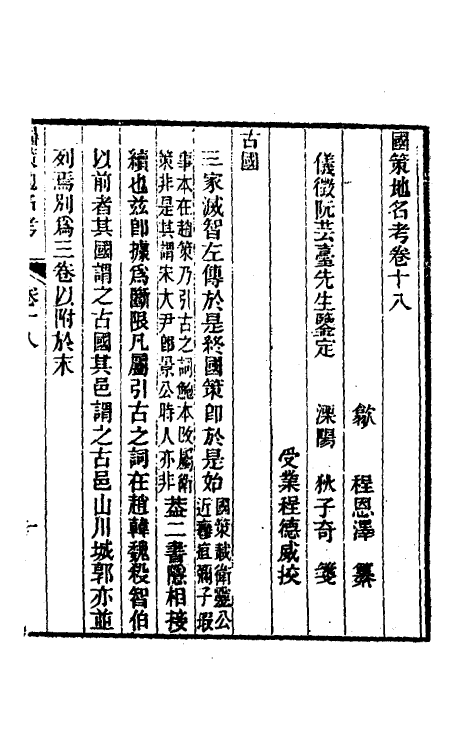 國策地名考卷十八
歙 程恩澤 纂
儀徵阮芸臺先生鑒定 溧陽 狄子奇 箋
受業程德威挍
古國
三家滅智左傳於是終國策卽於是始國策載衛靈公近癰疽彌子瑕
事本在趙策乃引古之詞鮑本改屬衛策非是其謂宋大尹卽景公時人亦非蓋二書隱相接
續也兹卽據爲斷限凡屬引古之詞在趙韓魏殺智伯
以前者其國謂之古國其邑謂之古邑山川城郭亦並
列焉別爲三卷以附於末
國策地名考
卷十八
一